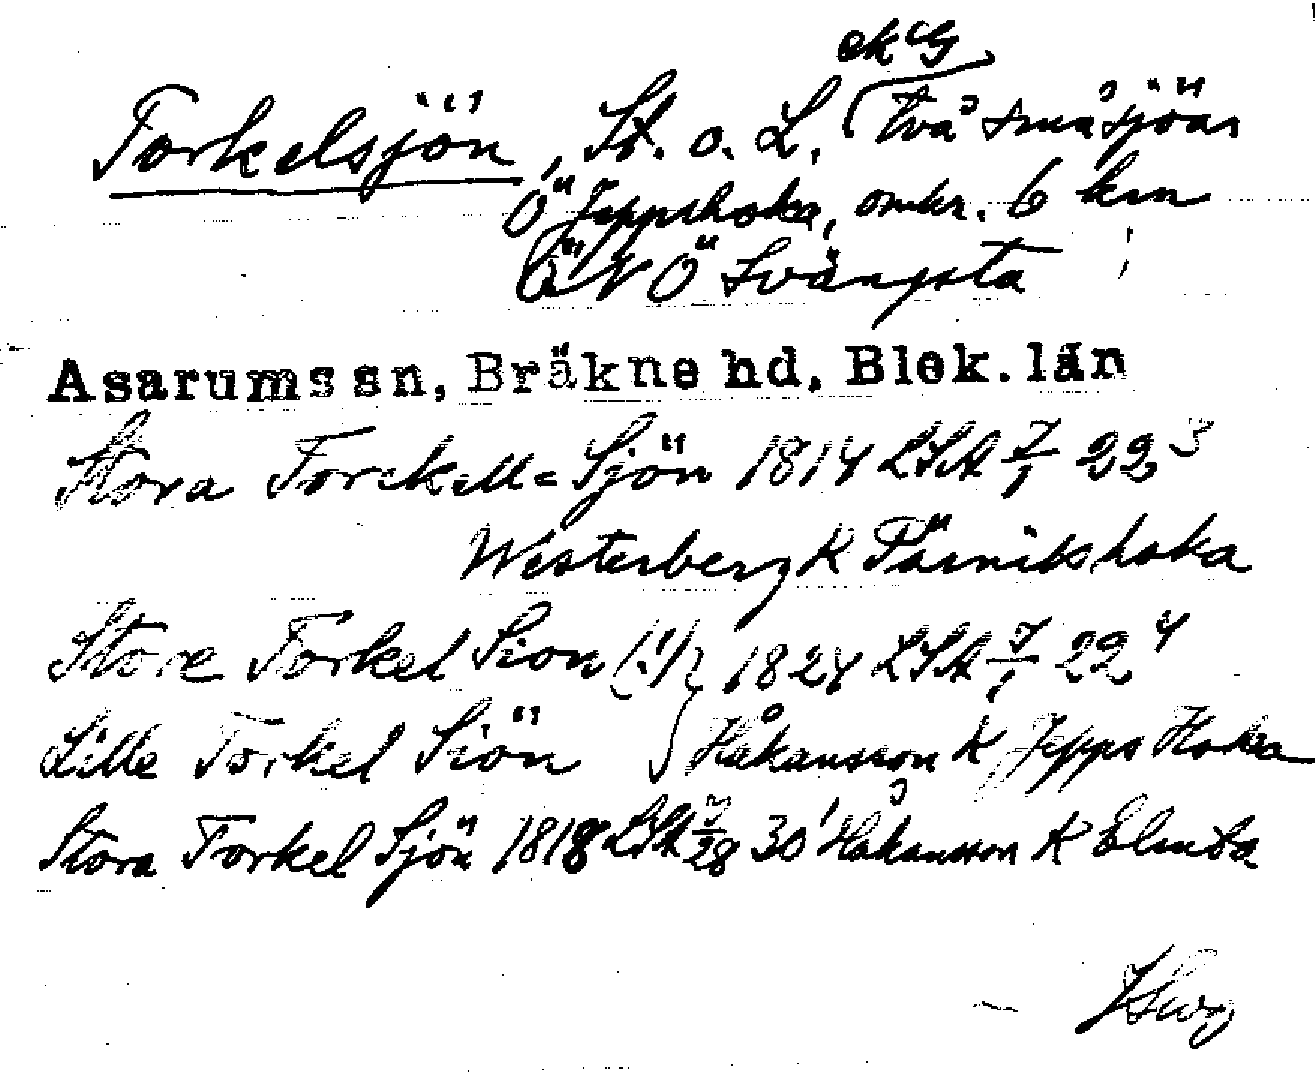 ek G
Torkelsjön, St. o. L. (två småsjöar
Ö Jeppshoka, omkr. 6 km
Ö N Ö Svängsta
Asarums sn, Bräkne hd, Blek. län
Stora Torckell= Sjön 1814 LSA 7/1 22 3
Westerberg K Pärnikshoka
Store Torkel Sion (!) } 1824 LSA 7/1 22 4
Lille Torkel Siön } Håkansson K Jepps Hoka
Stora Torkel Sjön 1818 LSA 7/28 30 1 Håkansson K